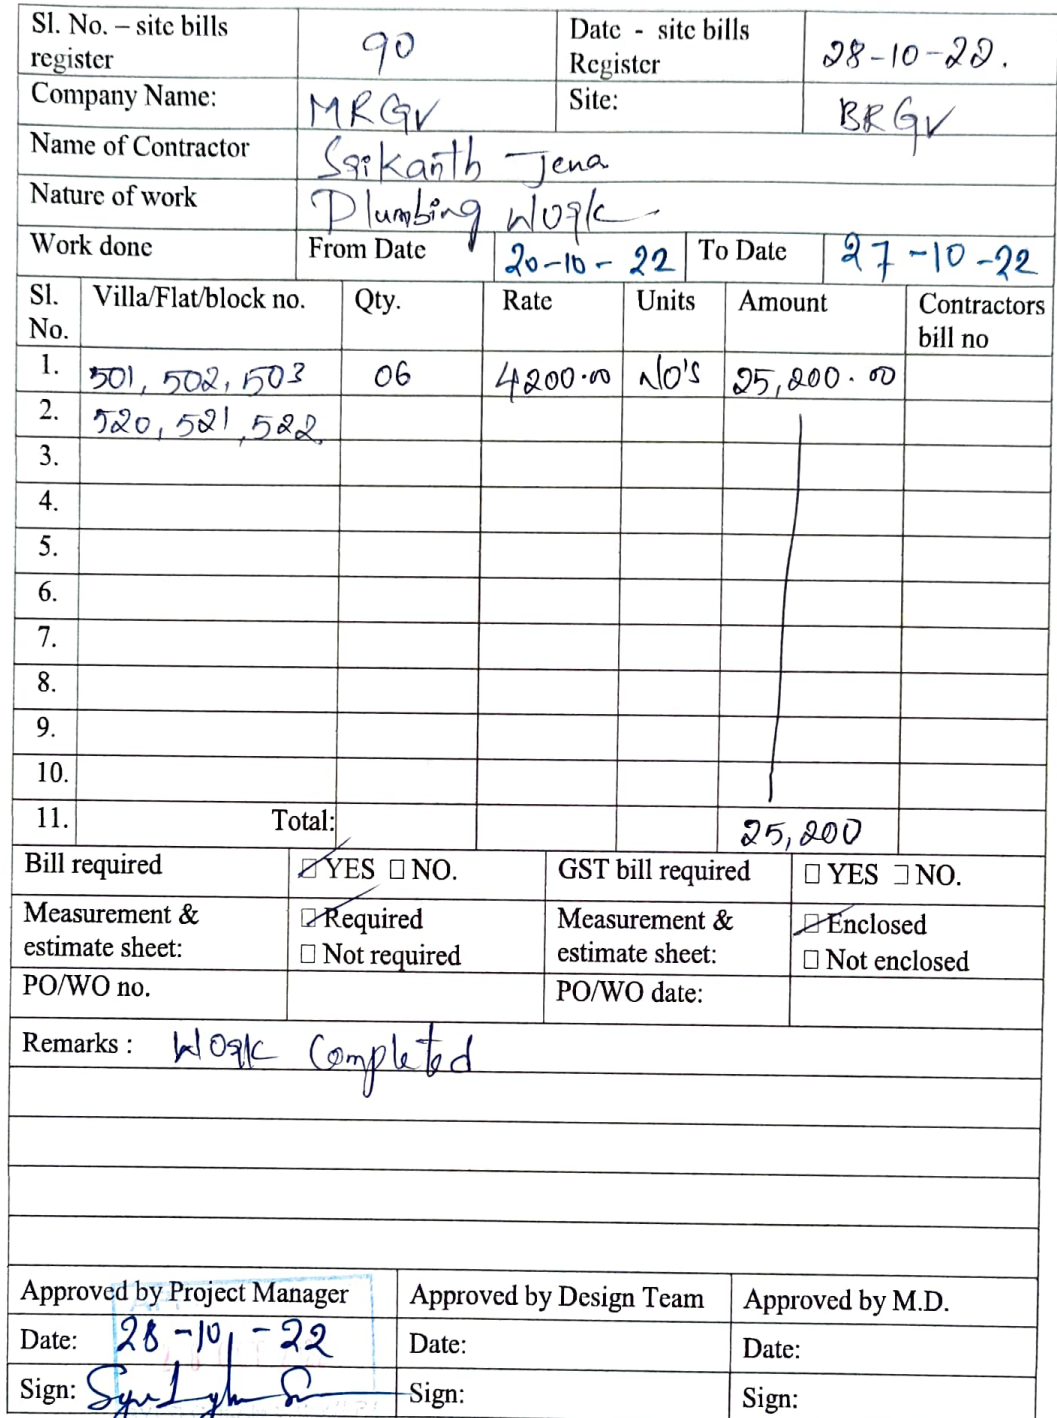 Sl. No. – site bills register 90 Date - site bills Register 28-10-22.
Company Name: MRGV Site: BRGV
Name of Contractor Srikanth Jena
Nature of work Plumbing Work
Work done From Date 20-10-22 To Date 27-10-22
Sl. No. Villa/Flat/block no. Qty. Rate Units Amount Contractors bill no
1. 501, 502, 503 06 4200.00 NO'S 25,200.00
2. 520, 521, 522
3.
4.
5.
6.
7.
8.
9.
10.
11. Total: 25,200
Bill required YES NO. GST bill required YES NO.
Measurement & estimate sheet: Required Not required Measurement & estimate sheet: Enclosed Not enclosed
PO/WO no. PO/WO date:
Remarks : Work Completed
Approved by Project Manager Approved by Design Team Approved by M.D.
Date: 28-10-22 Date: Date:
Sign: Sign: Sign: